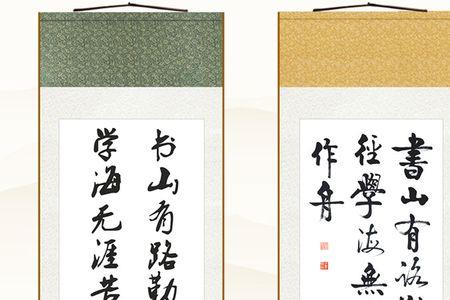 书山有路勤
学海无涯苦
書山有路
径學海無
作舟